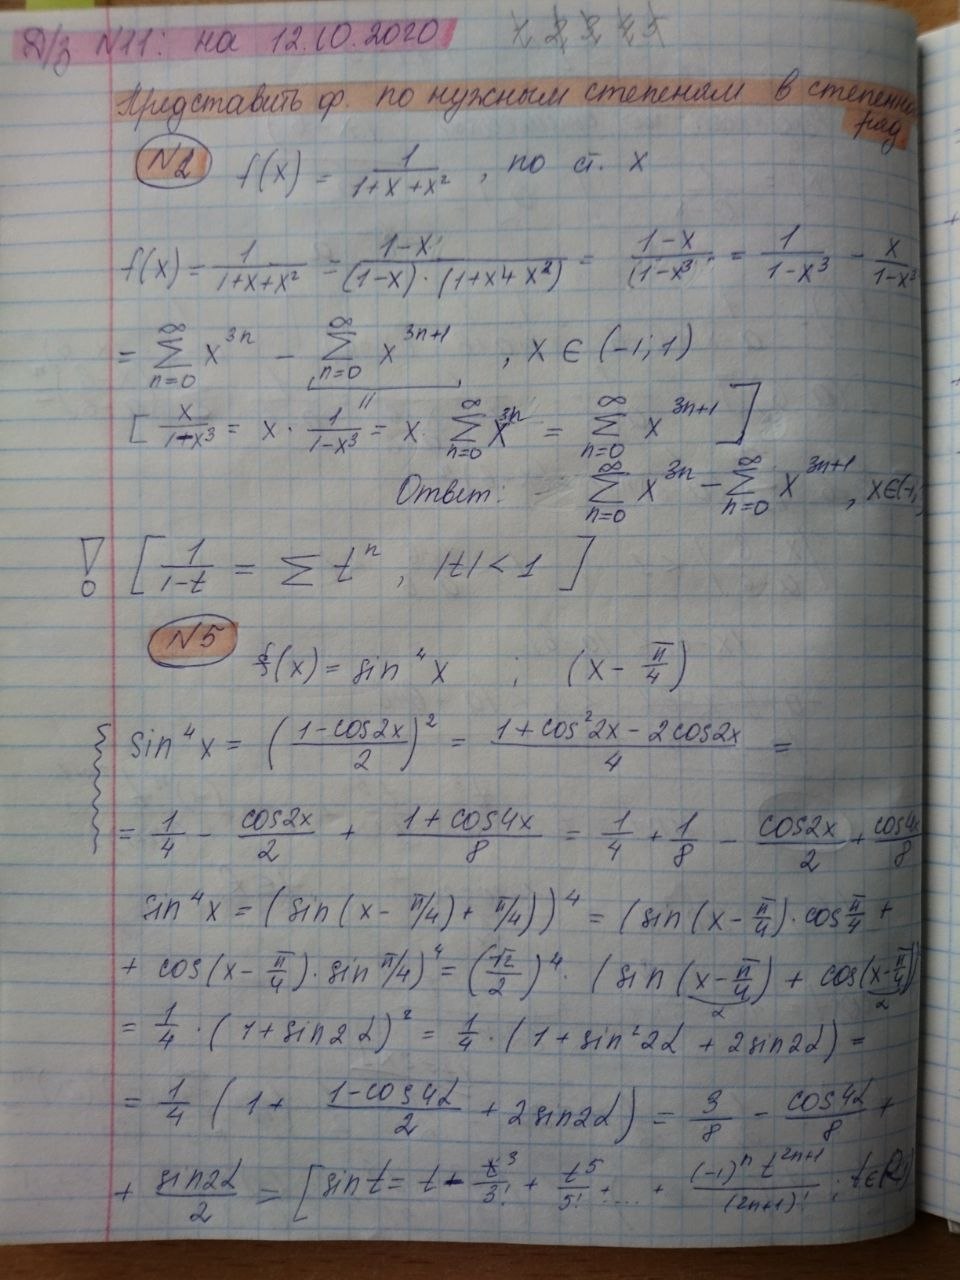 Д/з №11: на 12.10.2020 1 2 3 4 5
Представить ф. по нужным степеням в степенно
ряд
№2 f(x) = 1/(1+x+x²), по ст. x
f(x) = 1/(1+x+x²) = (1-x)/((1-x)·(1+x+x²)) = (1-x)/(1-x³) = 1/(1-x³) - x/(1-x³)
= ∑_{n=0}^{∞} x^{3n} - ∑_{n=0}^{∞} x^{3n+1}, x ∈ (-1; 1)
[x/(1-x³) = x · 1/(1-x³) = x · ∑_{n=0}^{∞} x^{3n} = ∑_{n=0}^{∞} x^{3n+1}]
Ответ: ∑_{n=0}^{∞} x^{3n} - ∑_{n=0}^{∞} x^{3n+1}, x∈(-1,
! [1/(1-t) = ∑ t^n, |t| < 1]
№5
f(x) = sin⁴x ; (x - π/4)
sin⁴x = ((1-cos2x)/2)² = (1+cos²2x-2cos2x)/4 =
= 1/4 - cos2x/2 + (1+cos4x)/8 = 1/4 + 1/8 - cos2x/2 + cos4x/8
sin⁴x = (sin(x-π/4)+π/4))⁴ = (sin(x-π/4)·cosπ/4 +
+ cos(x-π/4)·sinπ/4)⁴ = (√2/2)⁴·(sin(x-π/4) + cos(x-π/4))
α α
= 1/4·(1+sin2α)² = 1/4·(1+sin²2α + 2sin2α) =
= 1/4(1+ (1-cos4α)/2 + 2sin2α) = 3/8 - cos4α/8 +
+ sin2α/2 = [sin t = t - t³/3! + t⁵/5! + ... + (-1)^n t^{2n+1}/(2n+1)! ; t∈R]